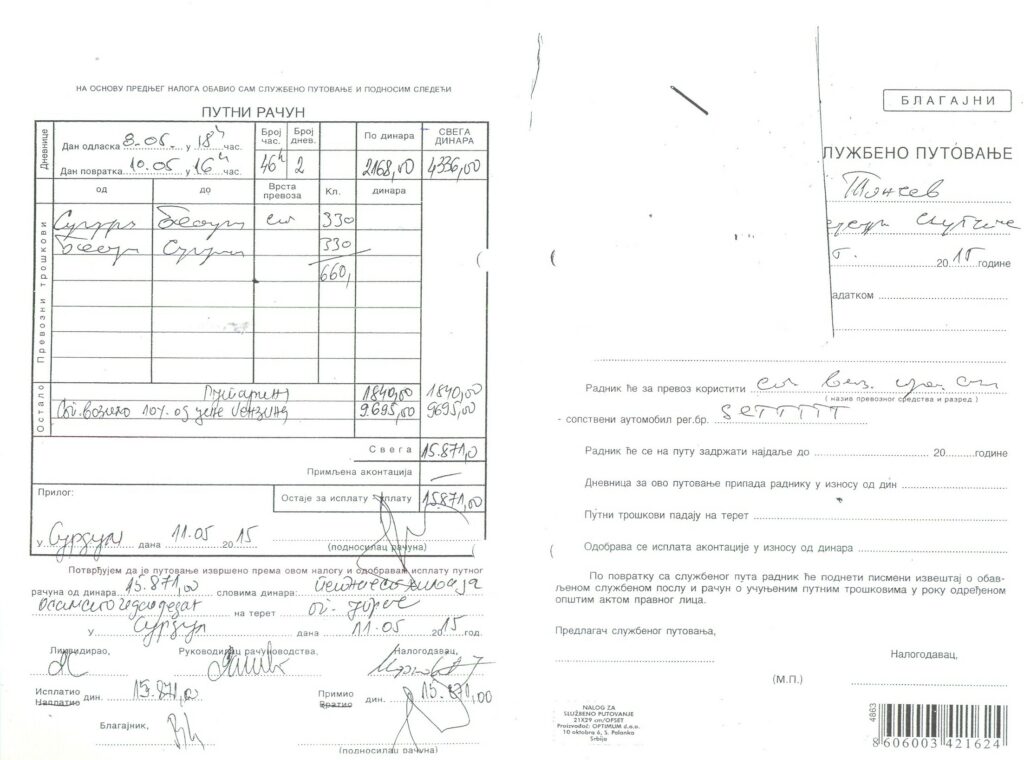 НА ОСНОВУ ПРЕДЊЕГ НАЛОГА ОБАВИО САМ СЛУЖБЕНО ПУТОВАЊЕ И ПОДНОСИМ СЛЕДЕЋИ
ПУТНИ РАЧУН
Дневнице
Дан одласка 8.05. у 18h час.
Дан повратка 10.05 у 16h час.
Број час. Број днев. По динара СВЕГА ДИНАРА
46h 2 2168,00 4336,00
Превозни трошкови
од до Врста превоза Кл. динара
330
330
660,
Остало
Путарина 1840,00 1840,00
возило 10% од цене бензина 9.695,00 9695,00
Свега 15.871,0
Примљена аконтација —
Прилог:
Остаје за исплату уплату 15.871,00
У Сурдул дана 11.05 2015
(подносилац рачуна)
Потврђујем да је путовање извршено према овом налогу и одобравам исплату путног
рачуна од динара 15.871,00 словима динара:
на терет
У Сурдул дана 11.05 2015 год.
Ликвидирао, Руководилац рачуноводства, Налогодавац,
Исплатио Наплатио дин. 15.871,00 Примио Вратио дин. 15.871,00
Благајник,
(подносилац рачуна)
БЛАГАЈНИ
ЛУЖБЕНО ПУТОВАЊЕ
Тончев
2015 године
адатком
Радник ће за превоз користити
( назив превозног средства и разред )
- сопствени аутомобил рег.бр.
Радник ће се на путу задржати најдаље до 20 године
Дневница за ово путовање припада раднику у износу од дин
Путни трошкови падају на терет
Одобрава се исплата аконтације у износу од динара
По повратку са службеног пута радник ће поднети писмени извештај о обав-
љеном службеном послу и рачун о учуњеним путним трошковима у року одређеном
општим актом правног лица.
Предлагач службеног путовања,
Налогодавац,
(М.П.)
NALOG ZA
SLUŽBENO PUTOVANJE
21X29 cm/OFSET
Proizvođač: OPTIMUM d.o.o.
10 oktobra 6, S. Palanka
Srbija
4863
8 606003 421624